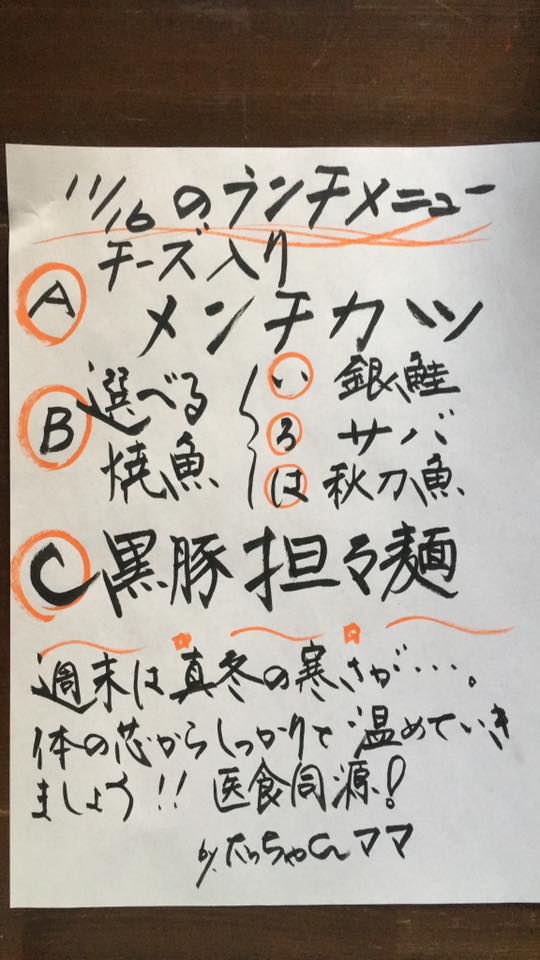 11/16のランチメニュー
A チーズ入り
メンチカツ
B 選べる
焼魚
い 銀鮭
ろ サバ
は 秋刀魚
C 黒豚担々麺
週末は真冬の寒さが・・・・。
体の芯からしっかりと温めていき
ましょう!! 医食同源!
by.たっちゃんママ